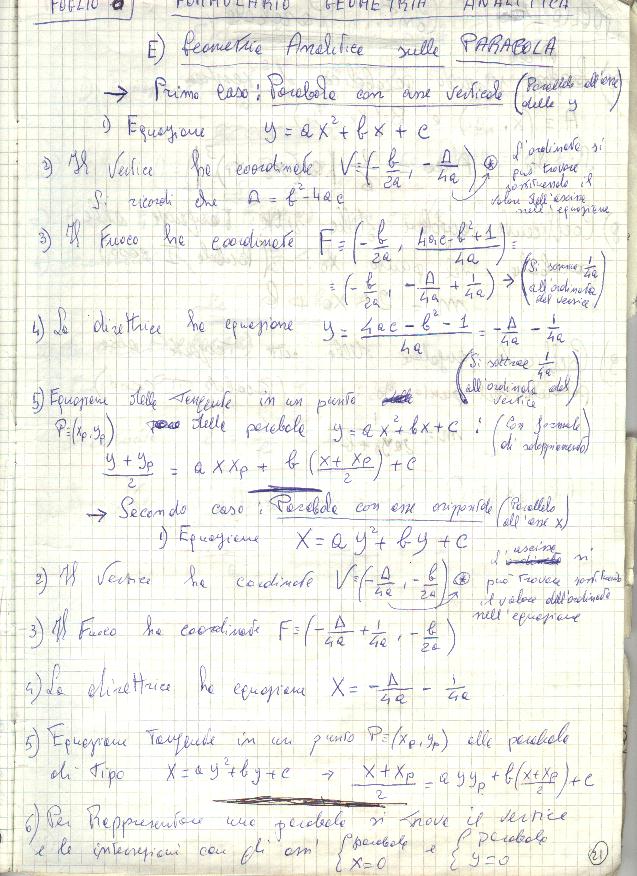 FOGLIO 8 FORMULARIO GEOMETRIA ANALITICA
E) Geometria Analitica sulla PARABOLA
→ Primo caso: Parabola con asse verticale (Parallelo all'asse delle y)
1) Equazione y = ax² + bx + c
2) Il Vertice ha coordinate V = (-b/2a, -Δ/4a) * L'ordinata si può trovare sostituendo il valore dell'ascissa nell'equazione
Si ricordi che Δ = b² - 4ac
3) Il Fuoco ha coordinate F = (-b/2a, (4ac - b² + 1)/4a) =
= (-b/2a, -Δ/4a + 1/4a) → (Si somma 1/4a all'ordinata del vertice)
4) La direttrice ha equazione y = (4ac - b² - 1)/4a = -Δ/4a - 1/4a
(Si sottrae 1/4a all'ordinata del vertice)
5) Equazione della Tangente in un punto
P=(xp, yp) della parabola y = ax² + bx + c : (Con formule di sdoppiamento)
(y + yp)/2 = a x xp + b((x + xp)/2) + c
→ Secondo caso: Parabola con asse orizzontale (Parallelo all'asse x)
1) Equazione X = ay² + by + c
2) Il Vertice ha coordinate V = (-Δ/4a, -b/2a) * L'ascissa si può trovare sostituendo il valore dell'ordinata nell'equazione
3) Il Fuoco ha coordinate F = (-Δ/4a + 1/4a, -b/2a)
4) La direttrice ha equazione X = -Δ/4a - 1/4a
5) Equazione Tangente in un punto P=(xp, yp) alla parabola
di Tipo X = ay² + by + c → (x + xp)/2 = a y yp + b((x + xp)/2) + c
6) Per Rappresentare una parabola si trova il vertice
e le intersezioni con gli assi {parabola x=0 e {parabola y=0
21